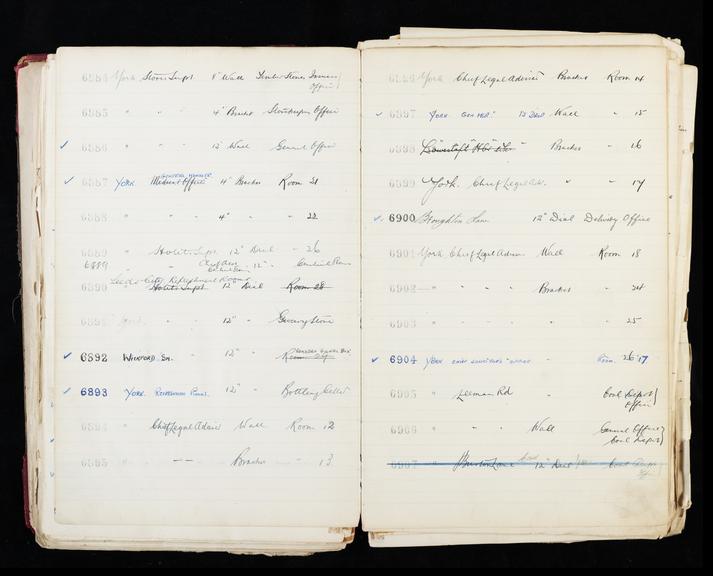 6884 York Stores Supt 8" Wall Timber Stores
Office
6885 " " 4" Bracket Storekeepers Office
6886 " " 12" Wall General Office
GENERAL MANAGER
6887 YORK. Medical Officer 4" Bracket Room 21
6888 " " 4" " " 22
6889 " Hotels Supt. 12" Dial " 26
6889 " " 12" "
Leeds City Refreshment Rooms
6890 " Hotels Supt. 12" Dial Room 28
York " 12" " Grocery Store
6892 WICKFORD SM. 12" " Room
6893 YORK REFRESHMENT ROOMS. 12" " Bottling Cellar
6894 " Chief Legal Adviser Wall Room 12
6895 " — — Bracket " 13
6896 York Chief Legal Adviser Bracket Room 14
6897 YORK GEN MGR. 12 DIAL Wall " 15
6898 Lowestoft Bracket " 16
6899 York. Chief Legal Adv. " " 17
6900 Houghton Lane 12" Dial Delivery Office
6901 York Chief Legal Adviser Wall Room 18
6902 " " " " Bracket " 24
6903 " " " " " " 25
6904 YORK CHIEF SOLICITOR'S OFFICE " Room 26 17
6905 " Leeman Rd " Coal Depot
Office
6906 " " " Wall General Office
Coal Depot
6907 " Burton Lane 12" Dial Coal